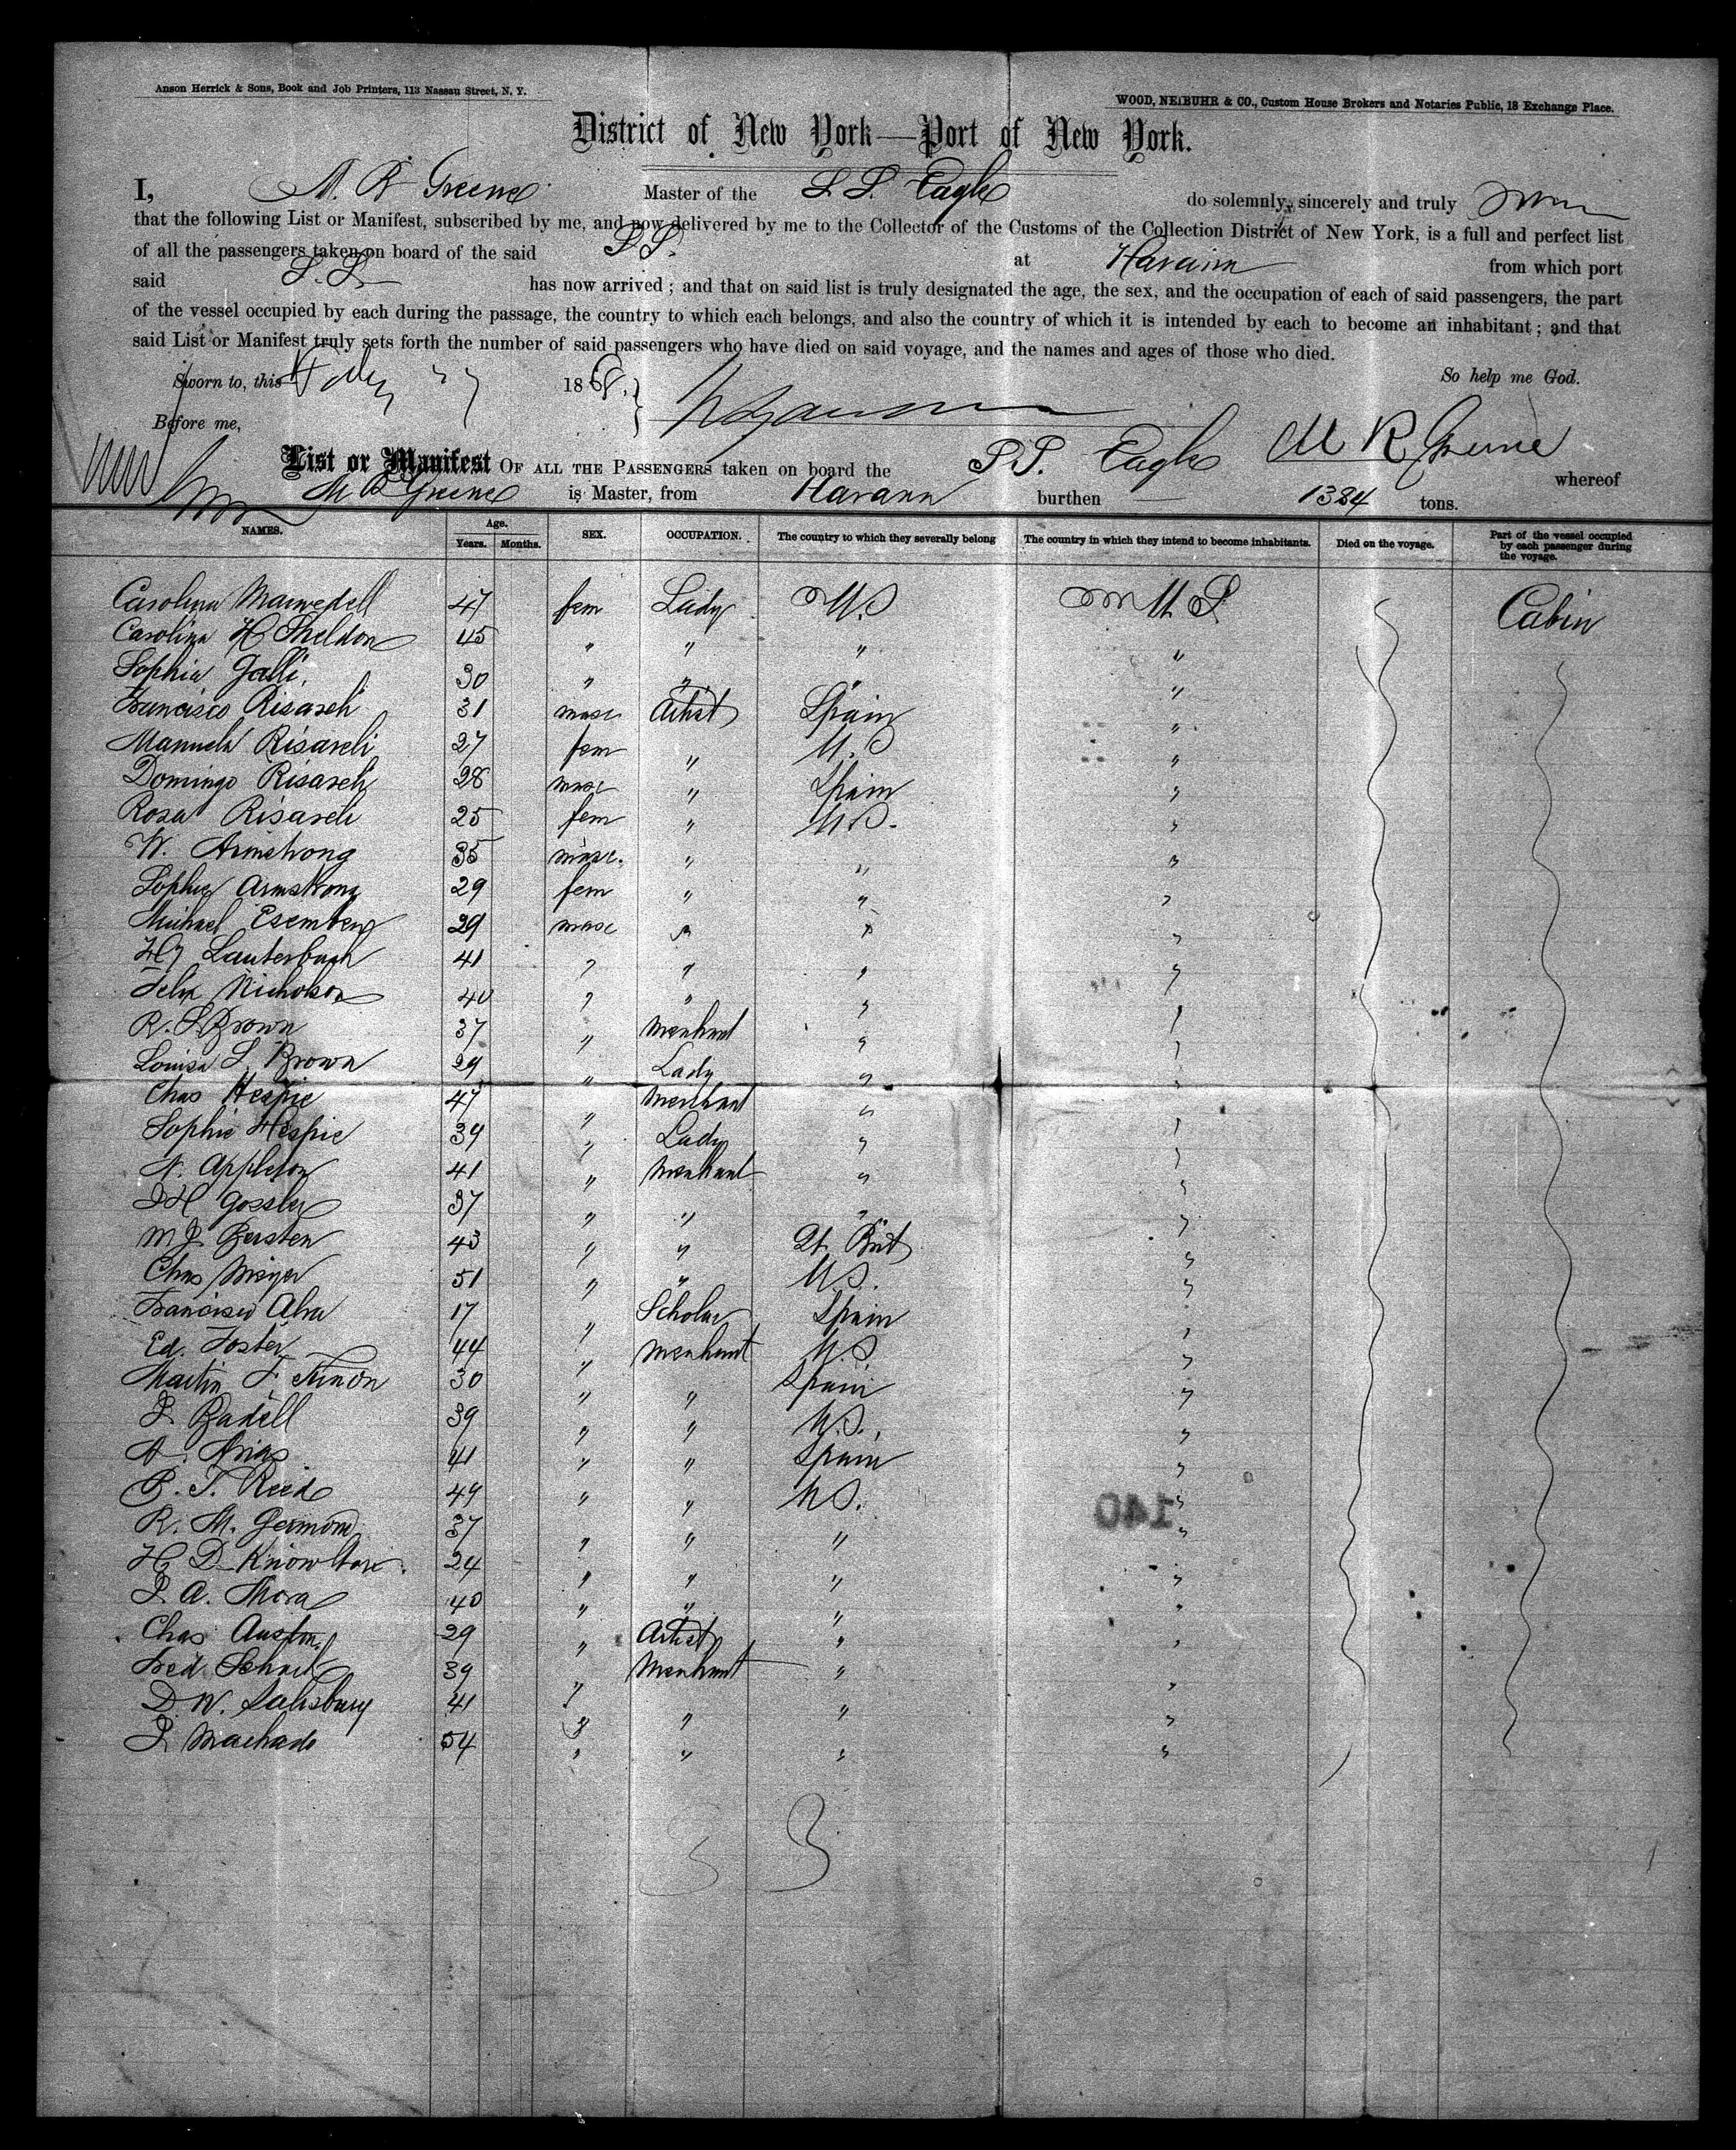 Anson Herrick & Sons, Book and Job Printers, 113 Nassau Street, N. Y.
WOOD, NEIBUHR & CO., Custom House Brokers and Notaries Public, 18 Exchange Place.
District of New York—Port of New York.
I, M. R Greene Master of the S S. Eagle do solemnly, sincerely and truly swear
that the following List or Manifest, subscribed by me, and now delivered by me to the Collector of the Customs of the Collection District of New York, is a full and perfect list
of all the passengers taken on board of the said S S. at Havana from which port
said S. S. has now arrived ; and that on said list is truly designated the age, the sex, and the occupation of each of said passengers, the part
of the vessel occupied by each during the passage, the country to which each belongs, and also the country of which it is intended by each to become an inhabitant ; and that
said List or Manifest truly sets forth the number of said passengers who have died on said voyage, and the names and ages of those who died.
Sworn to, this 1868. So help me God.
Before me,
M R Greene
List or Manifest OF ALL THE PASSENGERS taken on board the S S. Eagle whereof
M R Greene is Master, from Havana burthen — 1384 tons.
NAMES. Age. Years. Months. SEX. OCCUPATION. The country to which they severally belong The country in which they intend to become inhabitants. Died on the voyage. Part of the vessel occupied by each passenger during the voyage.
Carolina Marwedell 47 fem Lady U.S U S. Cabin
Carolina H Sheldon 45 " " " "
Sophia Galli, 30 " " " "
Francisco Risareli 31 masc Artist Spain "
Manuela Risareli 27 fem " U.S "
Domingo Risareli 28 masc " Spain "
Rosa Risareli 25 fem " U.S. "
W. Armstrong 35 masc. " " "
Sophie Armstrong 29 fem " " "
Michael 29 masc " " "
Lauterbach 41 " " " "
Felix Nicholson 40 " " " "
R. S Brown 37 " Merchant " "
Louisa S. Brown 29 " Lady " "
Chas Hespie 47 " Merchant " "
Sophie Hespie 39 " Lady " "
A. Appleton 41 " Merchant " "
J H Gossler 37 " " " "
M J Bersten 43 " " Gt. Brit "
Chas Meyer 51 " " U.S. "
Francisco Alva 17 " Scholar Spain "
Ed. Foster 44 " Merchant U.S "
Martin F. 30 " " Spain "
J. Badell 39 " " U.S., "
A. Arias 41 " " Spain "
B. T. Reed 49 " " U.S. "
R. M. Germond 37 " " " "
H D Knowlton. 24 " " " "
J. A. Mora 40 " " " "
Chas Auston. 29 " Artist " "
Fred. 39 " Merchant " "
D. W. Salisbury 41 " " " "
J. Machado 54 " " " "
140
33